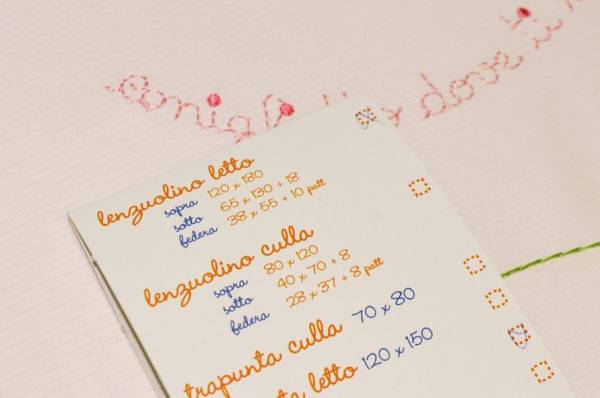 dove ti
lenzuolino letto
sopra 120 x 180
sotto 65 x 130 + 18
federa 38 x 55 + 10 patt
lenzuolino culla
sopra 80 x 120
sotto 40 x 70 + 8
federa 28 x 37 + 8 patt
trapunta culla 70 x 80
letto 120 x 150